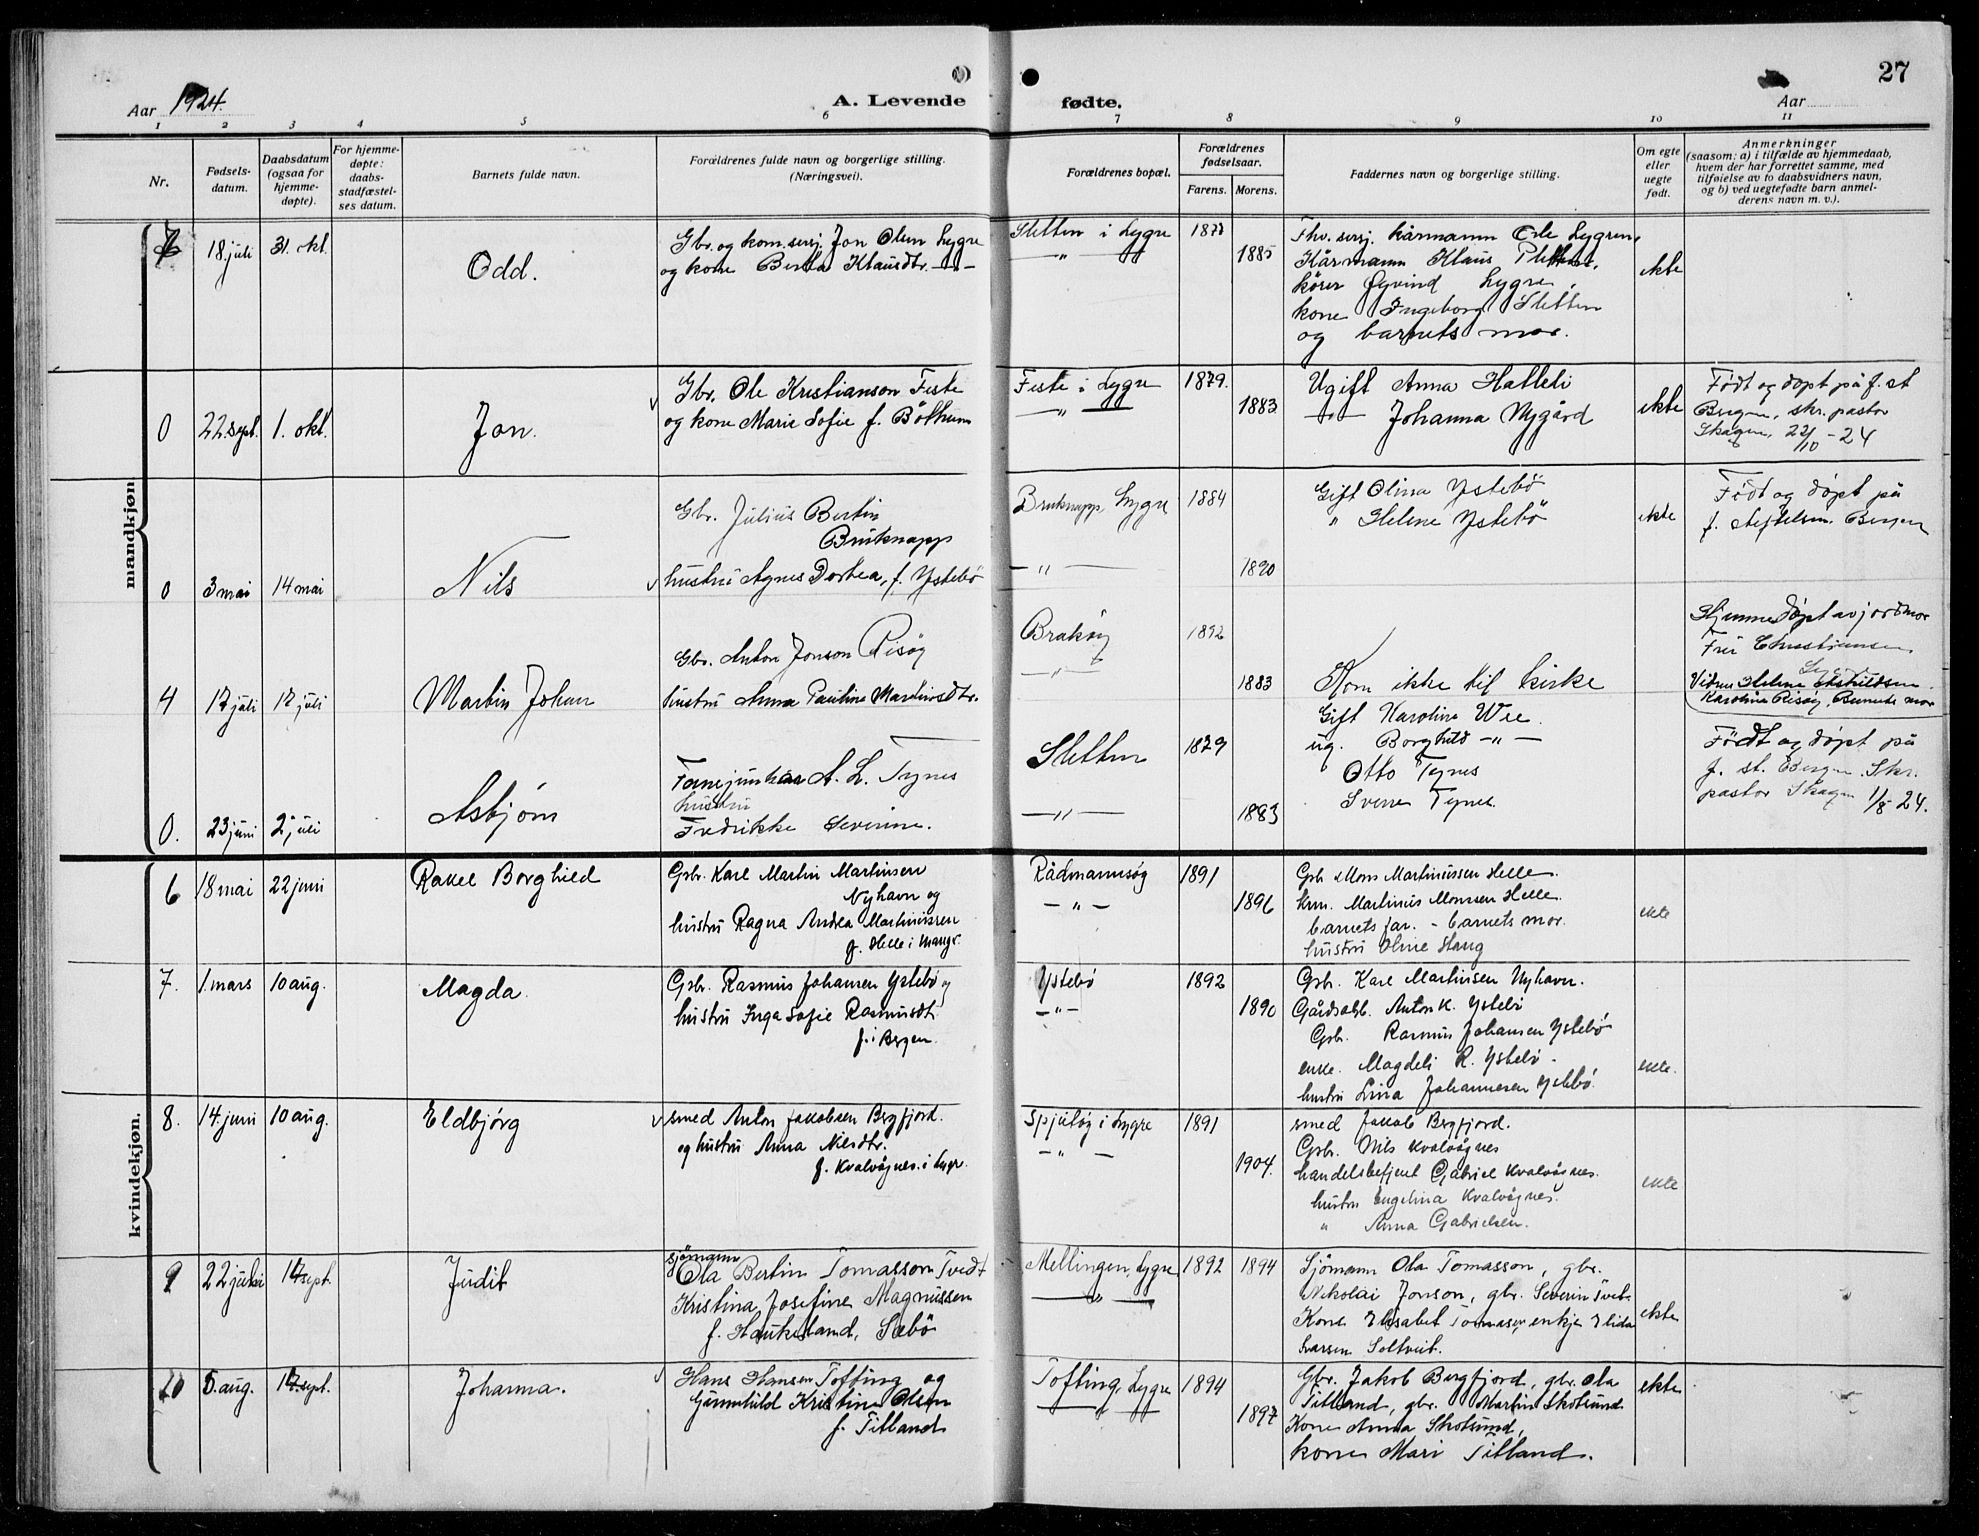 27
Aar 1924.
A. Levende
fødte.
Aar
1 2 3 4 5 6 7 8 9 10 11
Nr.
Fødsels-
datum.
Daabsdatum
(ogsaa for
hjemme-
døpte).
For hjemme-
døpte:
daabs-
stadfæstel-
ses datum.
Barnets fulde navn.
Forældrenes fulde navn og borgerlige stilling.
(Næringsvei).
Forældrenes bopæl.
Forældrenes
fødselsaar.
Farens. Morens.
Faddernes navn og borgerlige stilling.
Om egte
eller
uegte
født.
Anmerkninger
(saasom: a) i tilfælde av hjemmedaab,
hvem der har forrettet samme, med
tilføielse av to daabsvidners navn,
og b) ved uegtefødte barn anmel-
derens navn m. v.).
mandkjøn
18 juli 31. okt.
Odd.
Gbr. og kom.serj. Jon Olsen Lygre
og kone Berta Klausdtr. -"-
Sletten i Lygre
-"-
1885
Fhv. serj. kårmann Ole Lygren,
Kårmann Klaus
kører Øyvind Lygre,
kone Ingeborg Sletten
og barnets mor.
ekte
0 22. sept. 1. okt.
Jon.
Gbr. Ole Kristianson Feste
og kone Marie Sofie f. Bolthun
Feste i Lygre
-"-
1879.
1883
Ugift Anna Hatleli
-"- Johanna Nygård
ekte
Født og døpt på f. st
Bergen, skr. pastor
Skagen, 22/10 - 24
0 3 mai 14 mai
Nils
Gbr. Julius Bertin
Bruknapp
hustru Agnes Dortea, f. Ystebø
Bruknapp, Lygre
-"-
1884
1890
Gift Olina Ystebø
" Helene Ystebø
ekte
Født og døpt på
f. stiftelsen Bergen
4 17 juli 17 juli
Martin Johan
Gbr. Anton Jonson Risøy
hustru Anna Pauline Martinsdtr.
Brakøy
-"-
1892
1883
Kom ikke til kirke
Hjemmedøpt av jordmor
Fru Christiansen
Vidner Helene
Karoline Risøy, Barnets mor
0. 23 juni 2 juli
Asbjørn
A. L. Tynes
hustru
Fredrikke Severine.
Sletten
-"-
1879
1883
Gift Karoline Wee.
ug. Borghild -"-
Otto Tynes
Sverre Tynes.
Født og døpt på
f. st. Bergen. Skr.
pastor Skagen 1/8 24.
kvindekjøn.
6 18 mai 22 juni
Rakel Borghild
Gsbr. Karl Martin Martinsen
Nyhavn og
hustru Ragna Andrea Martinussen
f. Helle i Mangr.
Rådmannsøy
-"-
1891
1896
Gsb. Mons Martinussen Helle.
krm. Martinus Monssen Helle.
barnets far. - barnets mor.
hustru Oline Haug
ekte
7. 1. mars 10 aug.
Magda.
Gsbr. Rasmus Johansen Ystebø og
hustru Inga Sofie Rasmusdtr.
f. i Bergen.
Ystebø
-"-
1892
1890
Gsb. Karl Martinsen Nyhavn.
Gårdsarb. Anton K. Ystebø
Gsb. Rasmus Johansen Ystebø
enke. Magdeli R. Ystebø.
hustru Lina Johannesen Ystebø.
ekte.
8. 14. juni 10 aug.
Eldbjørg
smed Anton Jakobsen Bergfjord.
og hustru Anna Nilsdtr.
f. Kvalvågnes. i Lygr.
Spjutøy i Lygre
-"-
1891
1904.
smed Jakob Bergfjord.
Gsb. Nils Kvalvågnes
handelsbetjent Gabriel Kvalvågnes.
hustru Engelina Kvalvågnes.
" Anna Gabrielsen.
ekte
9 22 juli 14 sept.
Judit
sjømann
Ola Bertin Tomasson Tvedt
Kristina Josefine Magnussen
f. Haukeland, Sæbø
Mellingen, Lygre
-"-
1892 1894
Sjømann Ola Tomasson, gbr.
Nikolai Jonson, gbr. Severin Tveit
Kone Elisabet Tomasen, enkje Elida
Ivarsen Soltveit.
ekte
10 5. aug. 14. sept.
Johanna.
Hans Hansen Tofting og
Gunnhild Kristine Olsen
f. Titland
Tofting, Lygre
-"-
1894
1897
Gbr. Jakob Bergfjord, gbr. Ola
Titland, gbr. Martin Skotsund
Kone Anna Skotsund,
kone Mari Titland.
ekte